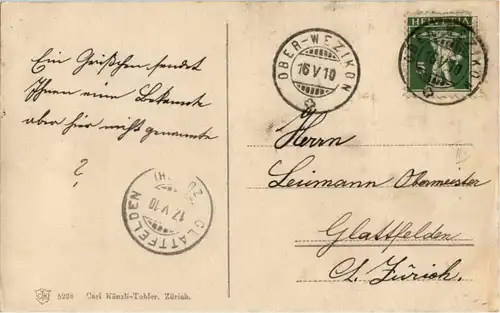 Ein Grüßchen sendet
Ihnen eine Bekannte
aber hier nicht genannte
?
OBER-WEZIKON
16 V 10
HELVETIA
5
Herrn
Leimann Obermeister
Glattfelden
Ct. Zürich.
GLATTFELDEN
17. V. 10
5208 Carl Künzli-Tobler, Zürich.